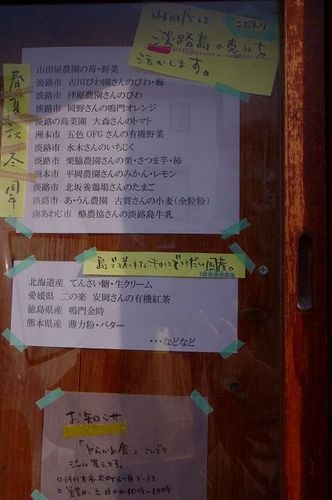 山田屋は
こだまり
淡路島の恵みを
活かします。
春夏秋冬
周年
山田屋農園の苺・野菜
淡路市 古川びわ園さんのびわ・梅
淡路市 拝原農園さんのびわ
淡路市 岡野さんの鳴門オレンジ
淡路の島菜園 大森さんのトマト
洲本市 五色OFGさんの有機野菜
淡路市 水木さんのいちじく
淡路市 栗脇農園さんの栗・さつま芋・柿
洲本市 平岡農園さんのみかん・レモン
淡路市 北坂養鶏場さんのたまご
淡路市 あ・うん農園 古賀さんの小麦(全粒粉)
南あわじ市 酪農協さんの淡路島牛乳
国産。
北海道産 てんさい糖・生クリーム
愛媛県 二の楽 安岡さんの有機紅茶
徳島県産 鳴門金時
熊本県産 薄力粉・バター
・・・などなど
お知らせ